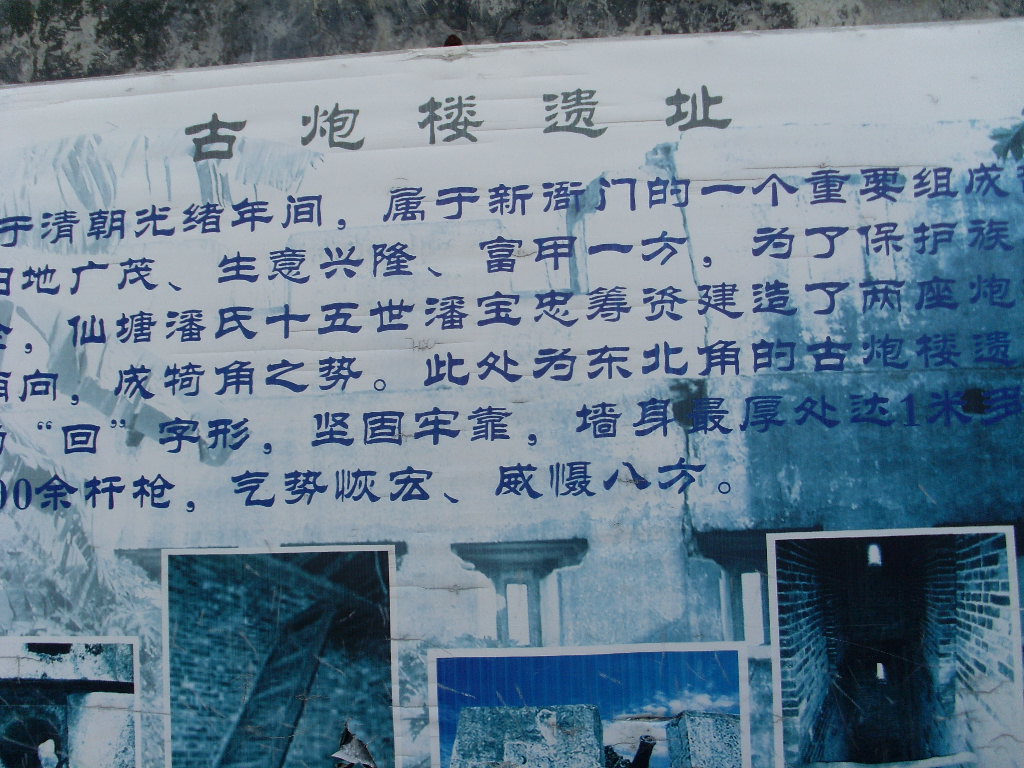 古炮楼遗址
于清朝光绪年间，属于新衙门的一个重要组成
田地广茂、生意兴隆、富甲一方，为了保护族
，仙塘潘氏十五世潘宝忠筹资建造了两座炮
向，成犄角之势。此处为东北角的古炮楼遗
“回”字形，坚固牢靠，墙身最厚处达1米多
00余杆枪，气势恢宏、威慑八方。